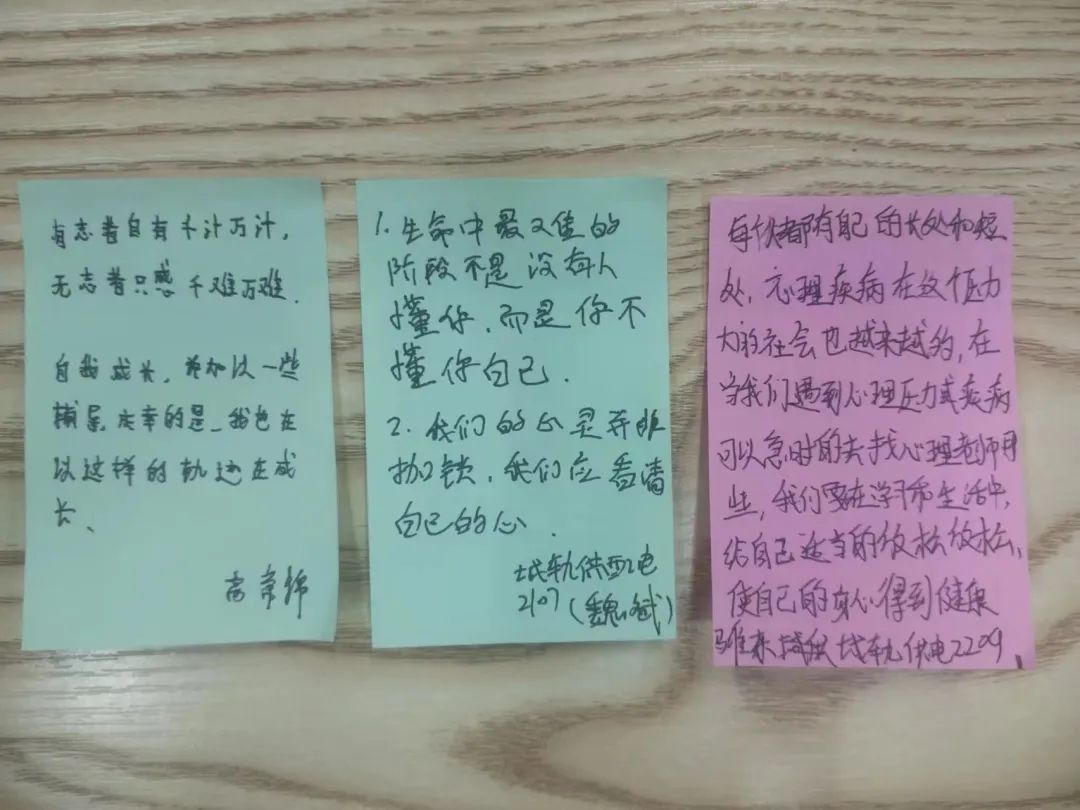 有志者自有千计万计，
无志者只感千难万难.
自我成长，并加以一些
辅导，庆幸的是，我也在
以这样的轨迹在成
长、
1. 生命中最又佳的
阶段不是没有人
懂你，而是你不
懂你自己.
2. 我们的心灵并非
枷锁，我们应看清
自己的心.
城轨供配电
2107(魏斌)
每个人都有自己的长处和短
处，心理疾病在这个压力
大的社会也越来越的，在
当我们遇到心理压力或疾病
可以急时的去找心理老师
些，我们要在学习和生活中，
给自己适当的放松放松，
使自己的身心得到健康
城轨供电2209